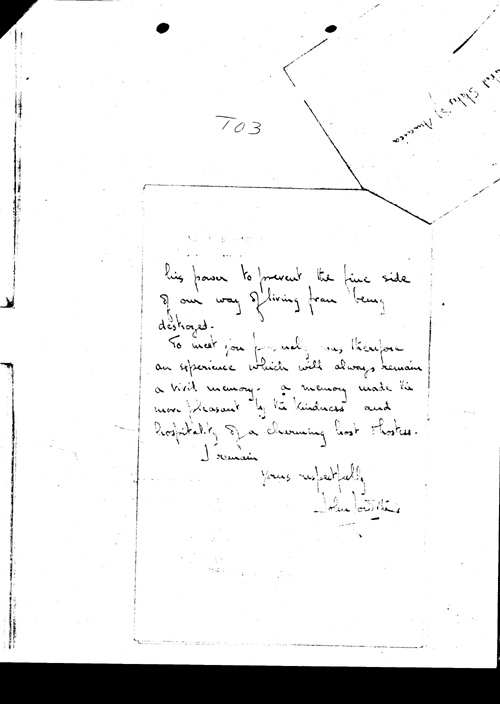 T03
States of America
his power to prevent the fine side
of our way of living from being
destroyed.
To meet you was, therefore
an experience which will always remain
a vivid memory - a memory made the
more pleasant by the kindness and
hospitality of a charming host & hostess.
I remain
yours respectfully
John